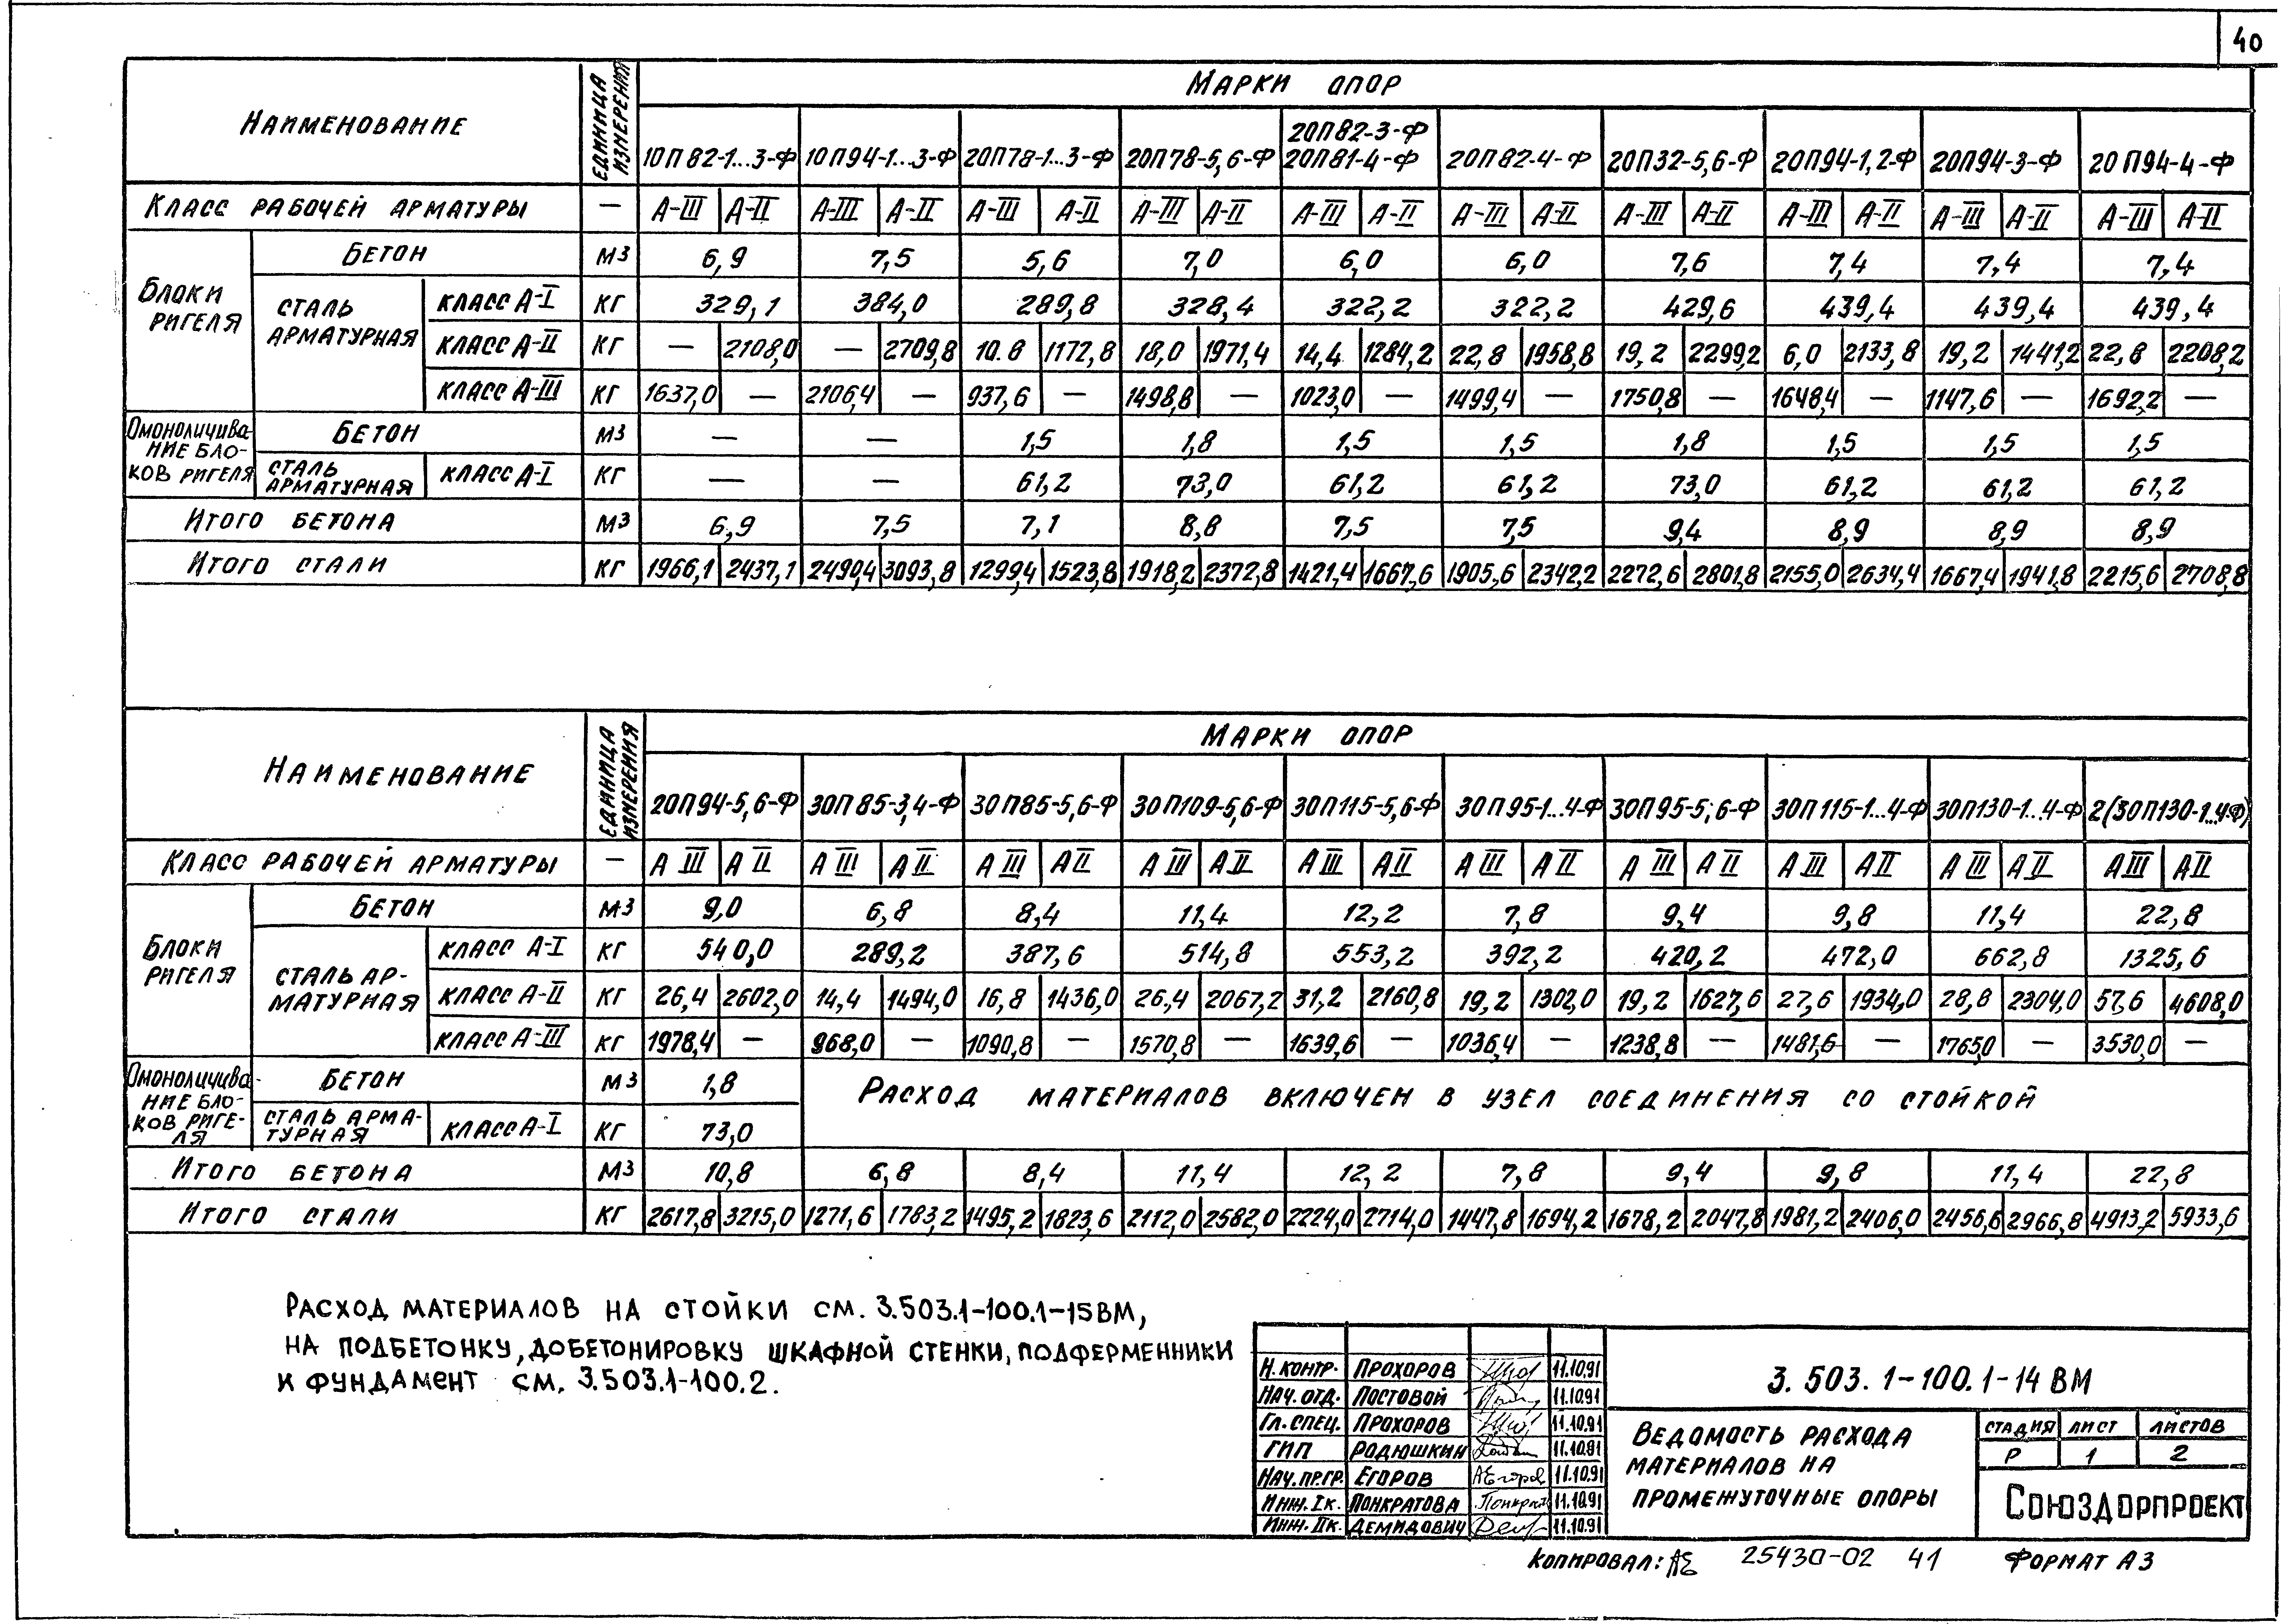 40
Наименование | Единица измерения | Марки опор
10П82-1...3-Ф | 10П94-1...3-Ф | 20П78-1...3-Ф | 20П78-5,6-Ф | 20П82-3-Ф 20П81-4-Ф | 20П82-4-Ф | 20П32-5,6-Ф | 20П94-1,2-Ф | 20П94-3-Ф | 20П94-4-Ф
Класс рабочей арматуры | — | А-III | А-II | А-III | А-II | А-III | А-II | А-III | А-II | А-III | А-II | А-III | А-II | А-III | А-II | А-III | А-II | А-III | А-II | А-III | А-II
Блоки ригеля | Бетон | м3 | 6,9 | 7,5 | 5,6 | 7,0 | 6,0 | 6,0 | 7,6 | 7,4 | 7,4 | 7,4
Сталь арматурная | класс А-I | кг | 329,1 | 384,0 | 289,8 | 328,4 | 322,2 | 322,2 | 429,6 | 439,4 | 439,4 | 439,4
класс А-II | кг | — | 2108,0 | — | 2709,8 | 10.8 | 1172,8 | 18,0 | 1971,4 | 14,4 | 1284,2 | 22,8 | 1958,8 | 19,2 | 2299,2 | 6,0 | 2133,8 | 19,2 | 1441,2 | 22,8 | 2208,2
класс А-III | кг | 1637,0 | — | 2106,4 | — | 937,6 | — | 1498,8 | — | 1023,0 | — | 1499,4 | — | 1750,8 | — | 1648,4 | — | 1147,6 | — | 1692,2 | —
Омоноличивание блоков ригеля | Бетон | м3 | — | — | 1,5 | 1,8 | 1,5 | 1,5 | 1,8 | 1,5 | 1,5 | 1,5
Сталь арматурная | класс А-I | кг | — | — | 61,2 | 73,0 | 61,2 | 61,2 | 73,0 | 61,2 | 61,2 | 61,2
Итого бетона | м3 | 6,9 | 7,5 | 7,1 | 8,8 | 7,5 | 7,5 | 9,4 | 8,9 | 8,9 | 8,9
Итого стали | кг | 1966,1 | 2437,1 | 2490,4 | 3093,8 | 1299,4 | 1523,8 | 1918,2 | 2372,8 | 1421,4 | 1667,6 | 1905,6 | 2342,2 | 2272,6 | 2801,8 | 2155,0 | 2634,4 | 1667,4 | 1941,8 | 2215,6 | 2708,8
Наименование | Единица измерения | Марки опор
20П94-5,6-Ф | 30П85-3,4-Ф | 30П85-5,6-Ф | 30П109-5,6-Ф | 30П115-5,6-Ф | 30П95-1...4-Ф | 30П95-5,6-Ф | 30П115-1...4-Ф | 30П130-1...4-Ф | 2(30П130-1...4-Ф)
Класс рабочей арматуры | — | А III | А II | А III | А II | А III | А II | А III | А II | А III | А II | А III | А II | А III | А II | А III | А II | А III | А II | А III | А II
Блоки ригеля | Бетон | м3 | 9,0 | 6,8 | 8,4 | 11,4 | 12,2 | 7,8 | 9,4 | 9,8 | 11,4 | 22,8
Сталь арматурная | класс А-I | кг | 540,0 | 289,2 | 387,6 | 514,8 | 553,2 | 392,2 | 420,2 | 472,0 | 662,8 | 1325,6
класс А-II | кг | 26,4 | 2602,0 | 14,4 | 1494,0 | 16,8 | 1436,0 | 26,4 | 2067,2 | 31,2 | 2160,8 | 19,2 | 1302,0 | 19,2 | 1627,6 | 27,6 | 1934,0 | 28,8 | 2304,0 | 57,6 | 4608,0
класс А-III | кг | 1978,4 | — | 968,0 | — | 1090,8 | — | 1570,8 | — | 1639,6 | — | 1036,4 | — | 1238,8 | — | 1481,6 | — | 1765,0 | — | 3530,0 | —
Омоноличивание блоков ригеля | Бетон | м3 | 1,8 | Расход материалов включен в узел соединения со стойкой
Сталь арматурная | класс А-I | кг | 73,0
Итого бетона | м3 | 10,8 | 6,8 | 8,4 | 11,4 | 12,2 | 7,8 | 9,4 | 9,8 | 11,4 | 22,8
Итого стали | кг | 2617,8 | 3215,0 | 1271,6 | 1783,2 | 1495,2 | 1823,6 | 2112,0 | 2582,0 | 2224,0 | 2714,0 | 1447,8 | 1694,2 | 1678,2 | 2047,8 | 1981,2 | 2406,0 | 2456,6 | 2966,8 | 4913,2 | 5933,6
Расход материалов на стойки см. 3.503.1-100.1-15ВМ,
на подбетонку, добетонировку шкафной стенки, подферменники
и фундамент см. 3.503.1-100.2.
Н. контр. | Прохоров | 11.10.91
Нач. отд. | Постовой | 11.10.91
Гл. спец. | Прохоров | 11.10.91
ГИП | Родюшкин | 11.10.91
Нач. пр.гр. | Егоров | 11.10.91
Инж. Iк. | Понкратова | 11.10.91
Инж. IIк. | Демидович | 11.10.91
3.503.1-100.1-14 ВМ
Ведомость расхода
материалов на
промежуточные опоры
стадия | лист | листов
Р | 1 | 2
Союздорпроект
Копировал: 25430-02 41 Формат А3